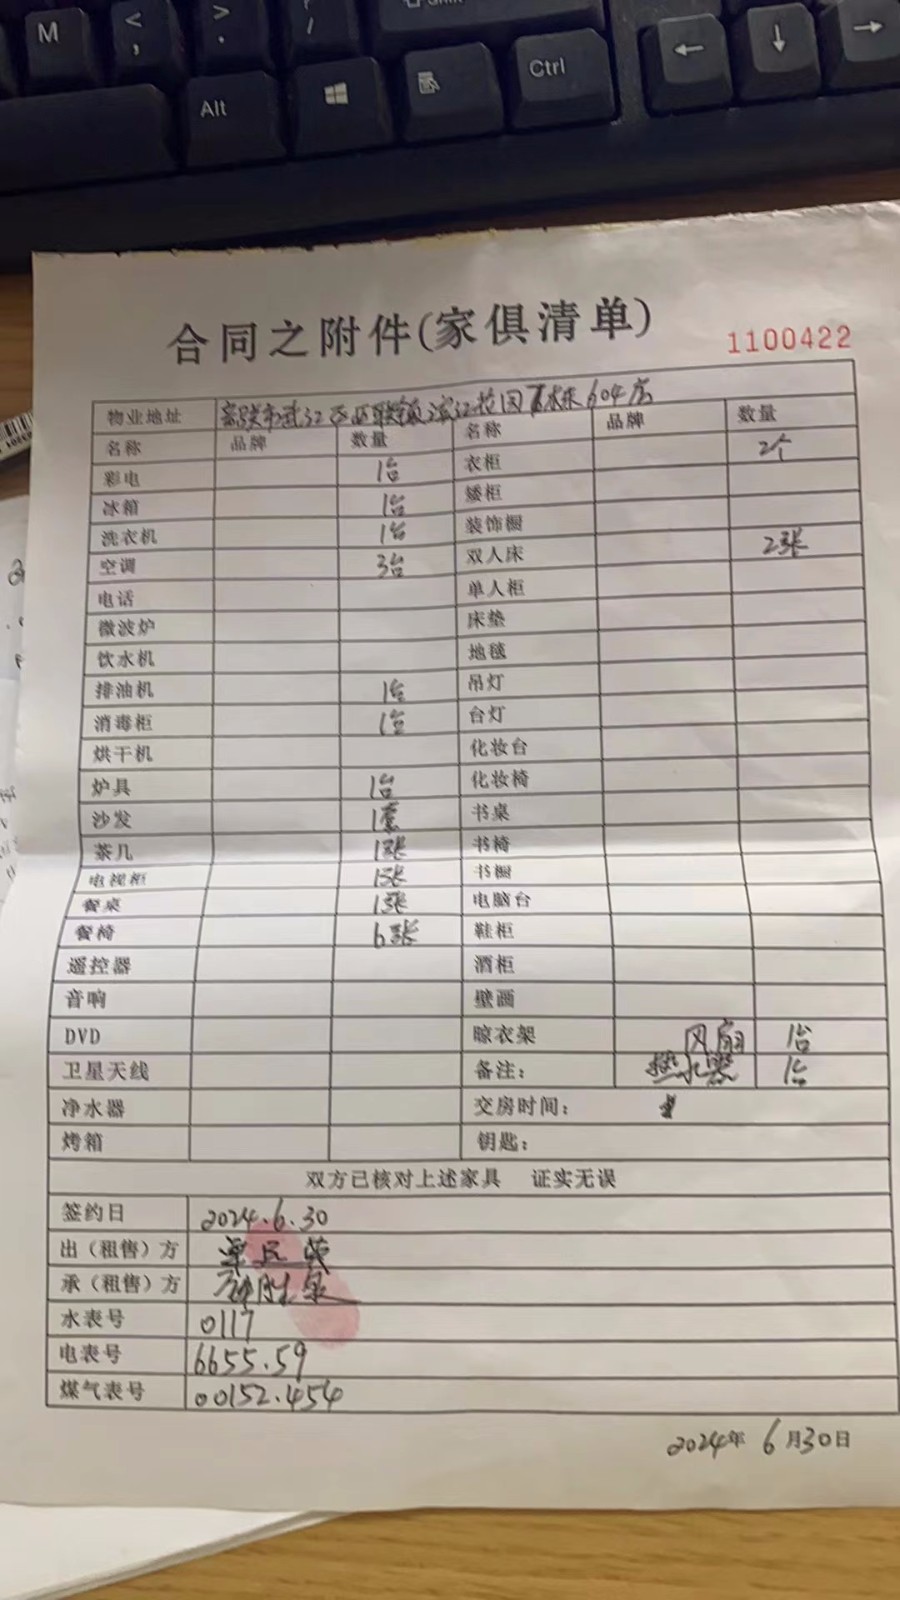 M < , > . / Shift
Alt Ctrl ← ↓ →
合同之附件(家俱清单)
1100422
物业地址 韶关市武江区西联镇滨江花园 栋604房
名称 品牌 数量 名称 品牌 数量
彩电 1台 衣柜 2个
冰箱 1台 矮柜
洗衣机 1台 装饰橱
空调 3台 双人床 2张
电话 单人柜
微波炉 床垫
饮水机 地毯
排油机 1台 吊灯
消毒柜 1台 台灯
烘干机 化妆台
炉具 1台 化妆椅
沙发 1套 书桌
茶几 1张 书椅
电视柜 1张 书橱
餐桌 1张 电脑台
餐椅 6张 鞋柜
遥控器 酒柜
音响 壁画
DVD 晾衣架 风扇 1台
卫星天线 备注: 热水器 1台
净水器 交房时间:
烤箱 钥匙:
双方已核对上述家具 证实无误
签约日 2024.6.30
出(租售)方
承(租售)方
水表号 0117
电表号 6655.59
煤气表号 00152.454
2024年 6月30日